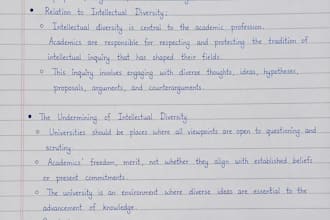 • Relation to Intellectual Diversity:
○ Intellectual diversity is central to the academic profession.
Academics are responsible for respecting and protecting the tradition of
intellectual inquiry that has shaped their fields.
○ This inquiry involves engaging with diverse thoughts, ideas, hypotheses,
proposals, arguments, and counterarguments.
• The Undermining of Intellectual Diversity
○ Universities should be places where all viewpoints are open to questioning and
scrutiny.
○ Academics' freedom, merit, not whether they align with established beliefs
or present commitments.
○ The university is an environment where diverse ideas are essential to the
advancement of knowledge.